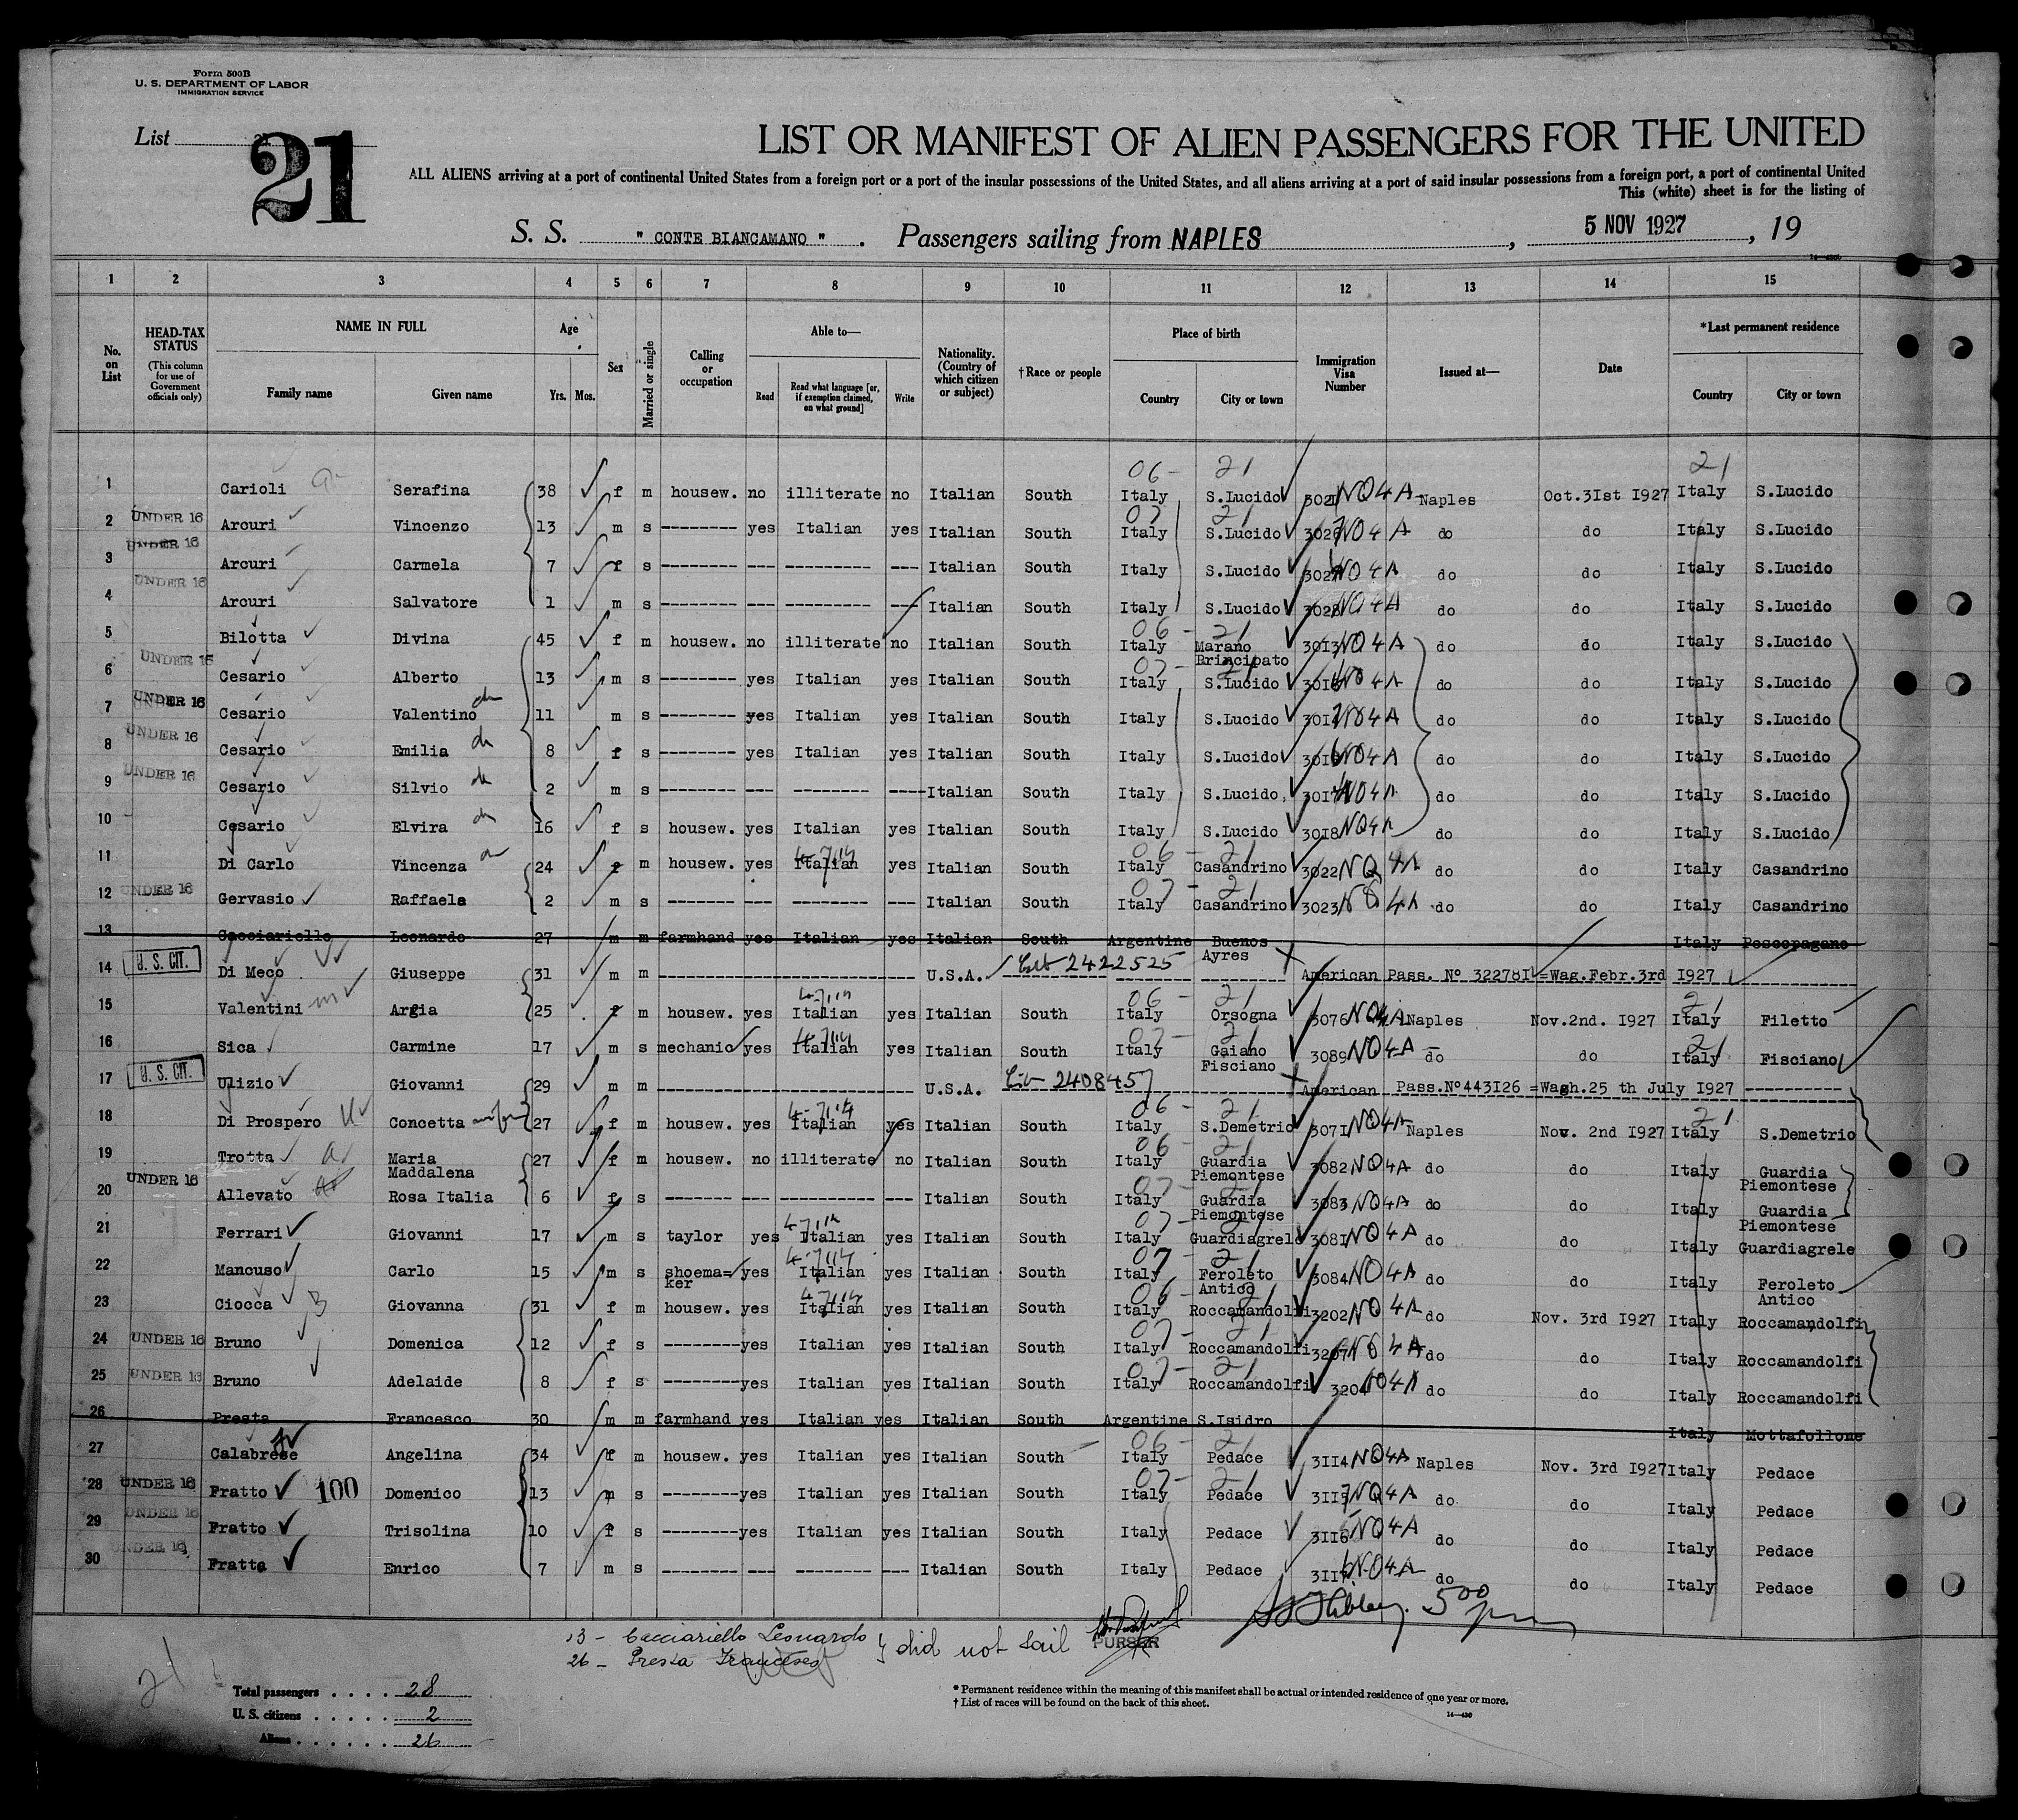 Form 500B
U. S. DEPARTMENT OF LABOR
IMMIGRATION SERVICE
List
21
LIST OR MANIFEST OF ALIEN PASSENGERS FOR THE UNITED
ALL ALIENS arriving at a port of continental United States from a foreign port or a port of the insular possessions of the United States, and all aliens arriving at a port of said insular possessions from a foreign port, a port of continental United
This (white) sheet is for the listing of
S. S. " CONTE BIANCAMANO " . Passengers sailing from NAPLES , 5 NOV 1927 , 19
1 2 3 4 5 6 7 8 9 10 11 12 13 14 15
No. on List
HEAD-TAX STATUS
(This column for use of Government officials only)
NAME IN FULL
Family name
Given name
Age
Yrs.
Mos.
Sex
Married or single
Calling or occupation
Able to—
Read
Read what language [or, if exemption claimed, on what ground]
Write
Nationality. (Country of which citizen or subject)
†Race or people
Place of birth
Country
City or town
Immigration Visa Number
Issued at—
Date
*Last permanent residence
Country
City or town
1 Carioli Serafina 38 f m housew. no illiterate no Italian South Italy S.Lucido NQ4A Naples Oct.3Ist I927 Italy S.Lucido
2 UNDER 16 Arcuri Vincenzo 13 m s -------- yes Italian yes Italian South Italy S.Lucido NO4A do do Italy S.Lucido
3 UNDER 16 Arcuri Carmela 7 f s -------- --- --------- --- Italian South Italy S.Lucido NO4A do do Italy S.Lucido
4 UNDER 16 Arcuri Salvatore 1 m s -------- --- --------- --- Italian South Italy S.Lucido NO4A do do Italy S.Lucido
5 Bilotta Divina 45 f m housew. no illiterate no Italian South Italy Marano Principato 30I3 NO4A do do Italy S.Lucido
6 UNDER 16 Cesario Alberto 13 m s -------- yes Italian yes Italian South Italy S.Lucido do do Italy S.Lucido
7 UNDER 16 Cesario Valentino 11 m s -------- yes Italian yes Italian South Italy S.Lucido do do Italy S.Lucido
8 UNDER 16 Cesario Emilia 8 f s -------- yes Italian yes Italian South Italy S.Lucido NO4A do do Italy S.Lucido
9 UNDER 16 Cesario Silvio 2 m s -------- --- -------- ---- Italian South Italy S.Lucido NO4A do do Italy S.Lucido
10 Cesario Elvira 16 f s housew. yes Italian yes Italian South Italy S.Lucido 30I8 NQ4A do do Italy S.Lucido
11 Di Carlo Vincenza 24 f m housew. yes Italian yes Italian South Italy Casandrino 3022 NQ4A do do Italy Casandrino
12 UNDER 16 Gervasio Raffaele 2 m s -------- --- -------- --- Italian South Italy Casandrino 3023 4A do do Italy Casandrino
13 Cacciariello Leonardo 27 m m farmhand yes Italian yes Italian South Argentine Buenos Ayres Italy Pescopagano
14 U. S. CIT. Di Meco Giuseppe 31 m m ---------------- U.S.A. 2422525 American Pass. Nº 32278I =Wag.Febr.3rd I927
15 Valentini Argia 25 f m housew. yes Italian yes Italian South Italy Orsogna 3076 NO4A Naples Nov.2nd. I927 Italy Filetto
16 Sica Carmine 17 m s mechanic yes Italian yes Italian South Italy Gaiano Fisciano 3089 NO4A do do Italy Fisciano
17 U. S. CIT. Ulizio Giovanni 29 m m ---------------- U.S.A. 240845 American Pass.Nº443I26 =Wagh.25 th July I927 ----------
18 Di Prospero Concetta 27 f m housew. yes Italian yes Italian South Italy S.Demetrio 307I NO4A Naples Nov. 2nd I927 Italy S.Demetrio
19 Trotta Maria Maddalena 27 f m housew. no illiterate no Italian South Italy Guardia Piemontese 3082 NO4A do do Italy Guardia Piemontese
20 UNDER 16 Allevato Rosa Italia 6 f s ------- --- ---------- --- Italian South Italy Guardia Piemontese 3083 NO4A do do Italy Guardia Piemontese
21 Ferrari Giovanni 17 m s taylor yes Italian yes Italian South Italy Guardiagrele 308I NO4A do do Italy Guardiagrele
22 Mancuso Carlo 15 m s shoema=ker yes Italian yes Italian South Italy Feroleto Antico 3084 NO4A do do Italy Feroleto Antico
23 Ciocca Giovanna 31 f m housew. yes Italian yes Italian South Italy Roccamandolfi 3202 NO4A do Nov. 3rd I927 Italy Roccamandolfi
24 UNDER 16 Bruno Domenica 12 f s -------- yes Italian yes Italian South Italy Roccamandolfi do do Italy Roccamandolfi
25 UNDER 16 Bruno Adelaide 8 f s -------- yes Italian yes Italian South Italy Roccamandolfi do do Italy Roccamandolfi
26 Presta Francesco 30 m m farmhand yes Italian yes Italian South Argentine S.Isidro Italy Mottafollone
27 Calabrese Angelina 34 f m housew. yes Italian yes Italian South Italy Pedace 3II4 NO4A Naples Nov. 3rd I927 Italy Pedace
28 UNDER 16 Fratto 100 Domenico 13 m s -------- yes Italian yes Italian South Italy Pedace NQ4A do do Italy Pedace
29 UNDER 16 Fratto Trisolina 10 f s -------- yes Italian yes Italian South Italy Pedace NO4A do do Italy Pedace
30 UNDER 16 Fratto Enrico 7 m s -------- --- -------- --- Italian South Italy Pedace NO4A do do Italy Pedace
13 - Cacciariello Leonardo
26 - Presta Francesco
} did not sail
PURSER
500 pm
21
Total passengers . . . . 28
U. S. citizens . . . . . 2
Aliens . . . . . . 26
* Permanent residence within the meaning of this manifest shall be actual or intended residence of one year or more.
† List of races will be found on the back of this sheet.
14—430